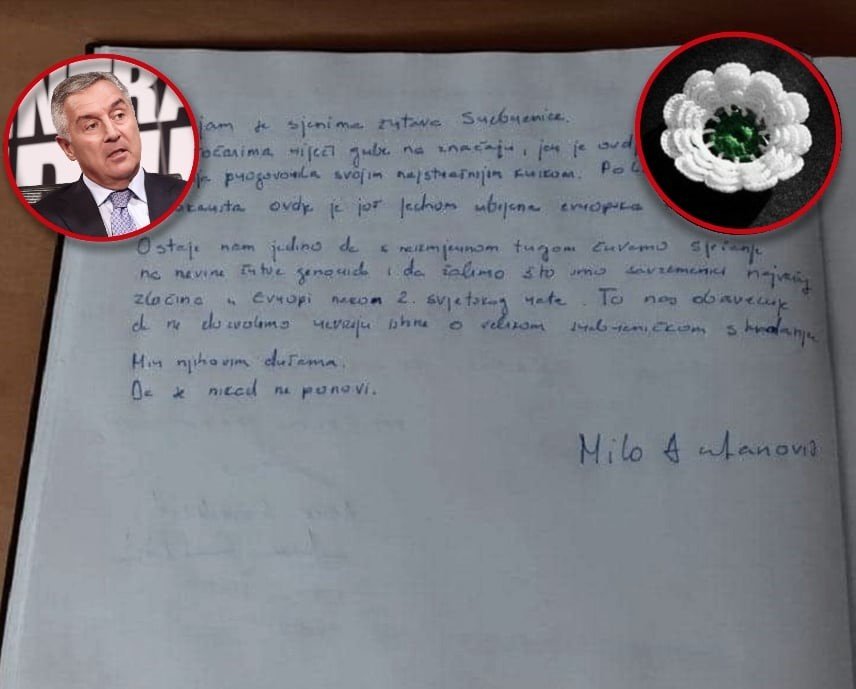 se sjenima žrtava Srebrenice.
riječi gube na značaju, jer je
progovorila svojim najstrašnijim krikom.
ovdje je još jednom ubijena evropska
Ostaje nam jedino da s neizmjernom tugom čuvamo sjećanje
na nevine žrtve genocida i da žalimo što smo savremenici najvećeg
zločina u Evropi nakon 2. svjetskog rata. To nas obavezuje
da ne dozvolimo reviziju istine o velikom srebreničkom stradanju
Mir njihovim dušama.
Da se nikad ne ponovi.
Milo